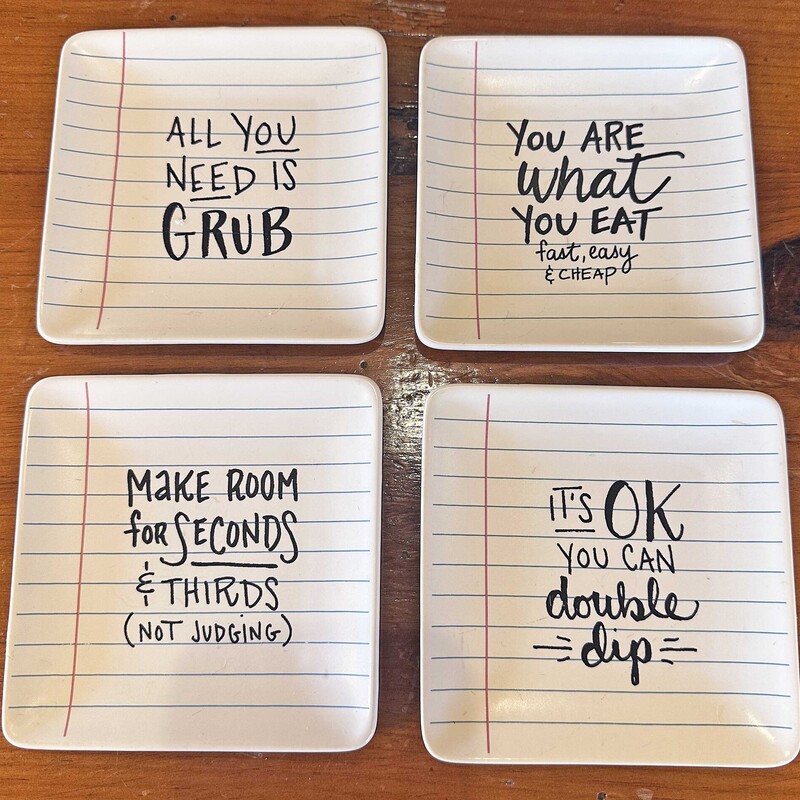 ALL YOU
NEED IS
GRUB
YOU ARE
what
YOU EAT
fast, easy
& CHEAP
MaKE ROOM
for SECONDS
& THIRDS
(NOT JUDGING)
IT'S OK
YOU CAN
double
dip